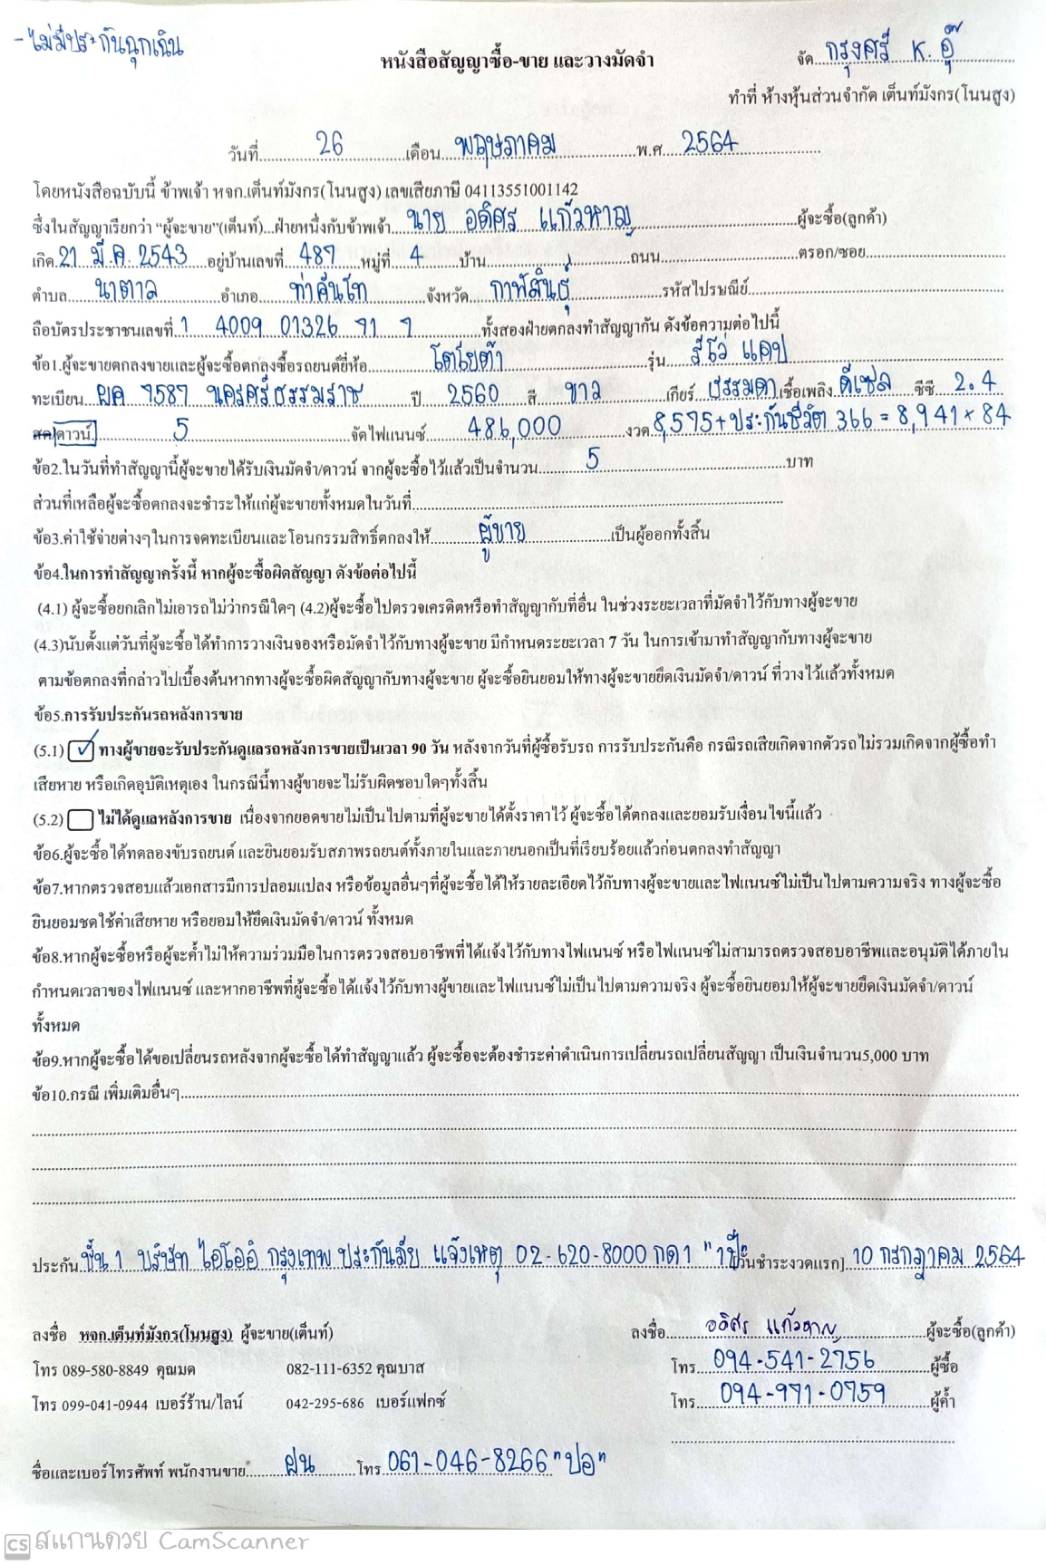 - ไม่มีประกันฉุกเฉิน
หนังสือสัญญาซื้อ-ขาย และวางมัดจำ
จัด กรุงศรี K. อุ๊
ทำที่ ห้างหุ้นส่วนจำกัด เต็นท์มังกร(โนนสูง)
วันที่ 26 เดือน พฤษภาคม พ.ศ 2564
โดยหนังสือฉบับนี้ ข้าพเจ้า หจก.เต็นท์มังกร(โนนสูง) เลขเสียภาษี 04113551001142
ซึ่งในสัญญาเรียกว่า "ผู้จะขาย"(เต็นท์)...ฝ่ายหนึ่งกับข้าพเจ้า นาย อดิศร แก้วหาญ ผู้จะซื้อ(ลูกค้า)
เกิด 21 มี.ค. 2543 อยู่บ้านเลขที่ 487 หมู่ที่ 4 บ้าน ถนน ตรอก/ซอย
ตำบล นาตาล อำเภอ ท่าคันโท จังหวัด กาฬสินธุ์ รหัสไปรษณีย์
ถือบัตรประชาชนเลขที่ 1 4009 01326 71 7 ทั้งสองฝ่ายตกลงทำสัญญากัน ดังข้อความต่อไปนี้
ข้อ1.ผู้จะขายตกลงขายและผู้จะซื้อตกลงซื้อรถยนต์ยี่ห้อ โตโยต้า รุ่น รีโว่ แคป
ทะเบียน ผค 7587 นครศรีธรรมราช ปี 2560 สี ขาว เกียร์ ธรรมดา เชื้อเพลิง ดีเซล ซีซี 2.4
สด/ดาวน์ 5 จัดไฟแนนซ์ 486,000 งวด 8,575+ประกันชีวิต 366 = 8,941 × 84
ข้อ2.ในวันที่ทำสัญญานี้ผู้จะขายได้รับเงินมัดจำ/ดาวน์ จากผู้จะซื้อไว้แล้วเป็นจำนวน 5 บาท
ส่วนที่เหลือผู้จะซื้อตกลงจะชำระให้แก่ผู้จะขายทั้งหมดในวันที่
ข้อ3.ค่าใช้จ่ายต่างๆในการจดทะเบียนและโอนกรรมสิทธิ์ตกลงให้ ผู้ขาย เป็นผู้ออกทั้งสิ้น
ข้อ4.ในการทำสัญญาครั้งนี้ หากผู้จะซื้อผิดสัญญา ดังข้อต่อไปนี้
(4.1) ผู้จะซื้อยกเลิกไม่เอารถไม่ว่ากรณีใดๆ (4.2)ผู้จะซื้อไปตรวจเครดิตหรือทำสัญญากับที่อื่น ในช่วงระยะเวลาที่มัดจำไว้กับทางผู้จะขาย
(4.3)นับตั้งแต่วันที่ผู้จะซื้อได้ทำการวางเงินจองหรือมัดจำไว้กับทางผู้จะขาย มีกำหนดระยะเวลา 7 วัน ในการเข้ามาทำสัญญากับทางผู้จะขาย
ตามข้อตกลงที่กล่าวไปเบื้องต้นหากทางผู้จะซื้อผิดสัญญากับทางผู้จะขาย ผู้จะซื้อยินยอมให้ทางผู้จะขายยึดเงินมัดจำ/ดาวน์ ที่วางไว้แล้วทั้งหมด
ข้อ5.การรับประกันรถหลังการขาย
(5.1) ✓ ทางผู้ขายจะรับประกันดูแลรถหลังการขายเป็นเวลา 90 วัน หลังจากวันที่ผู้ซื้อรับรถ การรับประกันคือ กรณีรถเสียเกิดจากตัวรถ ไม่รวมเกิดจากผู้ซื้อทำ
เสียหาย หรือเกิดอุบัติเหตุเอง ในกรณีนี้ทางผู้ขายจะไม่รับผิดชอบใดๆทั้งสิ้น
(5.2) ไม่ได้ดูแลหลังการขาย เนื่องจากยอดขายไม่เป็นไปตามที่ผู้จะขายได้ตั้งราคาไว้ ผู้จะซื้อได้ตกลงและยอมรับเงื่อนไขนี้แล้ว
ข้อ6.ผู้จะซื้อได้ทดลองขับรถยนต์ และยินยอมรับสภาพรถยนต์ทั้งภายในและภายนอกเป็นที่เรียบร้อยแล้วก่อนตกลงทำสัญญา
ข้อ7.หากตรวจสอบแล้วเอกสารมีการปลอมแปลง หรือข้อมูลอื่นๆที่ผู้จะซื้อได้ให้รายละเอียดไว้กับทางผู้จะขายและไฟแนนซ์ไม่เป็นไปตามความจริง ทางผู้จะซื้อ
ยินยอมชดใช้ค่าเสียหาย หรือยอมให้ยึดเงินมัดจำ/ดาวน์ ทั้งหมด
ข้อ8.หากผู้จะซื้อหรือผู้จะค้ำไม่ให้ความร่วมมือในการตรวจสอบอาชีพที่ได้แจ้งไว้กับทางไฟแนนซ์ หรือไฟแนนซ์ไม่สามารถตรวจสอบอาชีพและอนุมัติได้ภายใน
กำหนดเวลาของไฟแนนซ์ และหากอาชีพที่ผู้จะซื้อได้แจ้งไว้กับทางผู้ขายและไฟแนนซ์ไม่เป็นไปตามความจริง ผู้จะซื้อยินยอมให้ผู้จะขายยึดเงินมัดจำ/ดาวน์
ทั้งหมด
ข้อ9.หากผู้จะซื้อได้ขอเปลี่ยนรถหลังจากผู้จะซื้อได้ทำสัญญาแล้ว ผู้จะซื้อจะต้องชำระค่าดำเนินการเปลี่ยนรถเปลี่ยนสัญญา เป็นเงินจำนวน5,000 บาท
ข้อ10.กรณี เพิ่มเติมอื่นๆ
ประกัน ชั้น 1 บริษัท ไอโออิ กรุงเทพ ประกันภัย แจ้งเหตุ 02-620-8000 กด 1 "1ปี" วันชำระงวดแรก] 10 กรกฎาคม 2564
ลงชื่อ หจก.เต็นท์มังกร(โนนสูง) ผู้จะขาย(เต็นท์) ลงชื่อ อดิศร แก้วหาญ ผู้จะซื้อ(ลูกค้า)
โทร 089-580-8849 คุณมด 082-111-6352 คุณบาส โทร 094-541-2756 ผู้ซื้อ
โทร 099-041-0944 เบอร์ร้าน/ไลน์ 042-295-686 เบอร์แฟกซ์ โทร 094-971-0759 ผู้ค้ำ
ชื่อและเบอร์โทรศัพท์ พนักงานขาย ฝน โทร 061-046-8266 "ปอ"
CS สแกนด้วย CamScanner